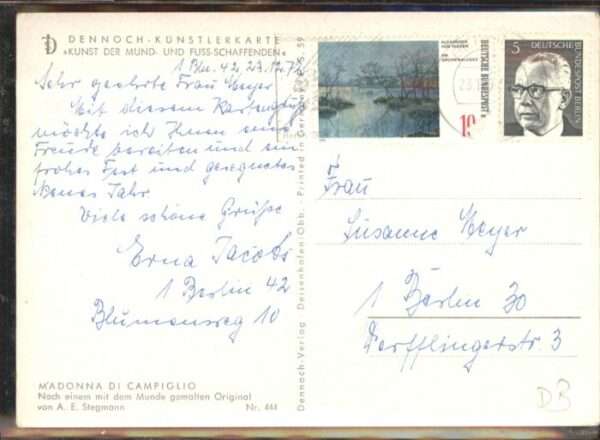 DENNOCH-KÜNSTLERKARTE
»KUNST DER MUND- UND FUSS-SCHAFFENDEN«
1 Bln. 42, 23.12.72
Sehr geehrte Frau Meyer
Mit diesem Kartengruß
möchte ich Ihnen eine
Freude bereiten und ein
frohes Fest und gesegnetes
Neues Jahr.
Viele schöne Grüße
Erna Jacobi
1 Berlin 42
Blumenweg 10
MADONNA DI CAMPIGLIO
Nach einem mit dem Munde gemalten Original
von A. E. Stegmann Nr. 444
Dennoch-Verlag Deisenhofen/Obb. · Printed in Germany
59
DEUTSCHE BUNDESPOST
10
5 DEUTSCHE
BUNDESPOST BERLIN
Frau
Susanne Meyer
1 Berlin 30
Derfflingerstr. 3
DB